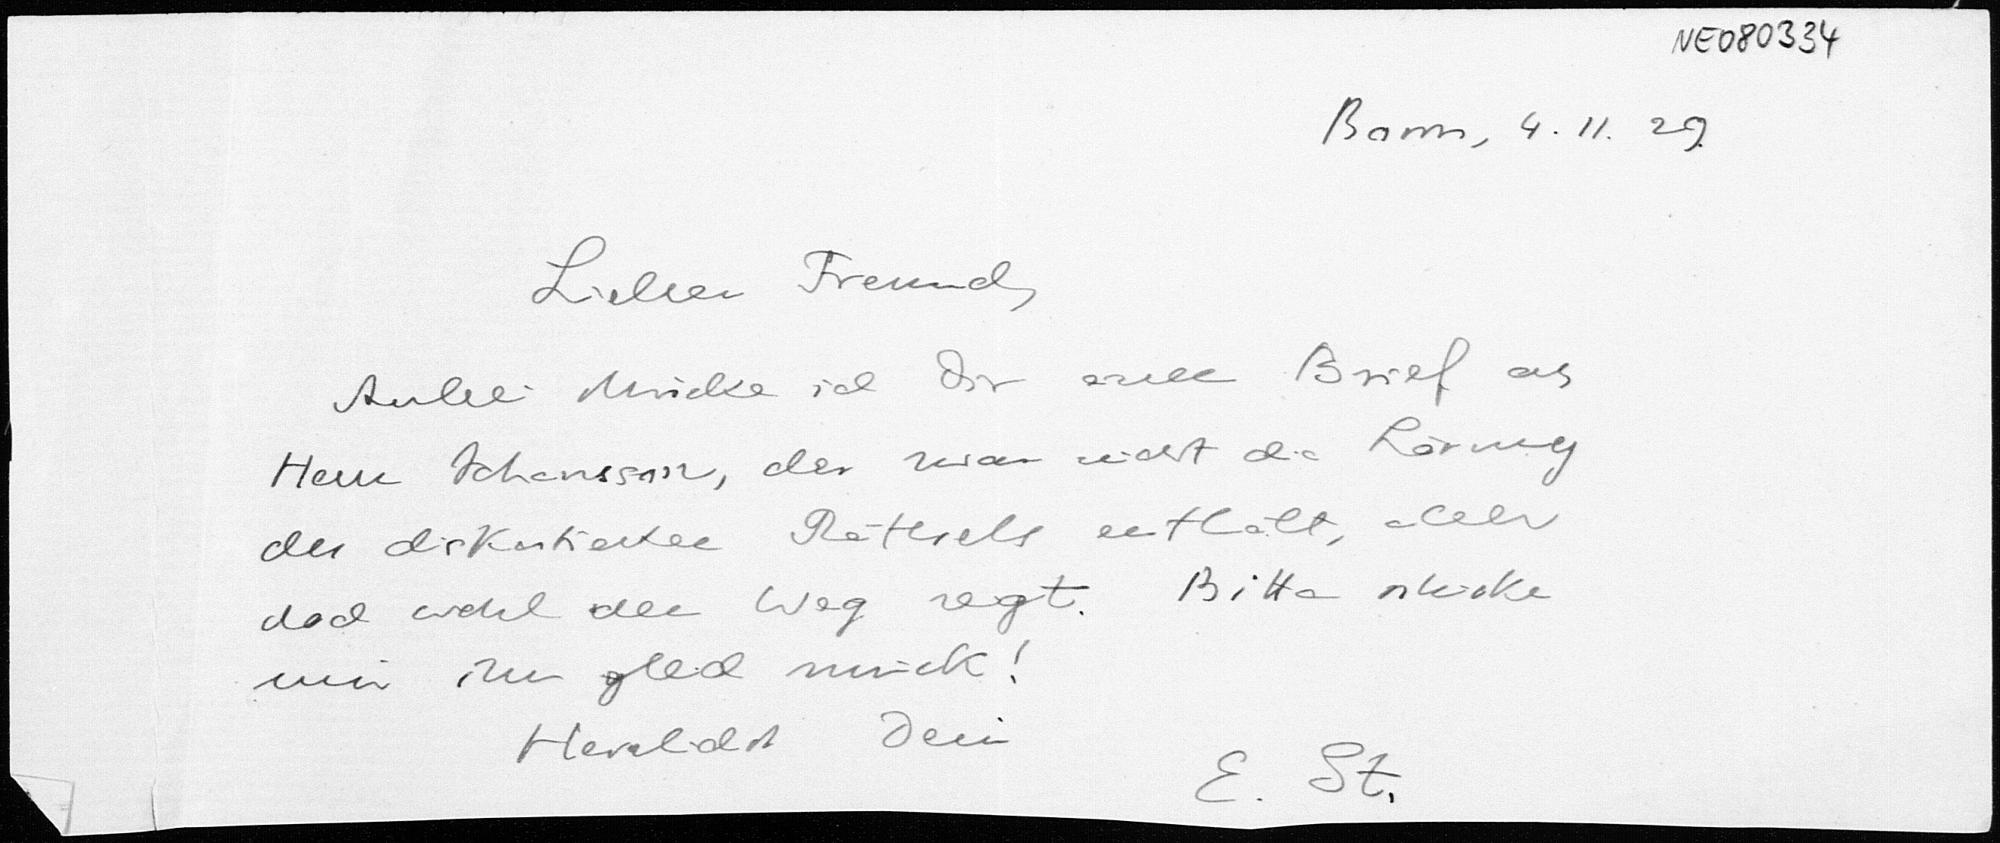 NE080334
Bonn, 4. 11. 29.
Lieber Freund,
Anbei schicke ich Dir einen Brief des
Herrn Johansson, der zwar nicht die Lösung
des diskutierten Räthsels enthält, aber
doch wohl den Weg zeigt. Bitte schicke
mir ihn gleich zurück!
Herzlichst Dein
E. St.